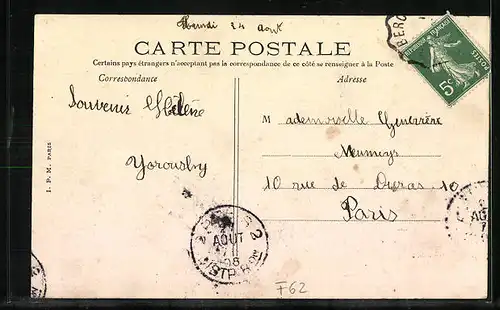 Mardi 24 Aout
CARTE POSTALE
Certains pays étrangers n'acceptant pas la correspondance de ce côté se renseigner à la Poste
Correspondance
Adresse
Souvenir Hélène
Mademoiselle
10 rue de Duras 10
Paris
I. P. M. PARIS
5c
POSTES
BERC
PARIS 2
AOUT
7
08
DISTRIBON
F62